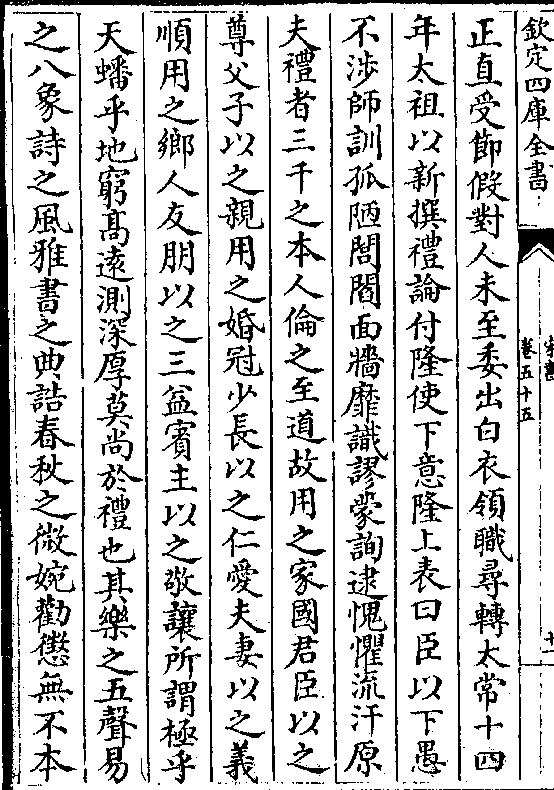 欽定四庫全書
卷五十五
正直受節假對人未至委出白衣領職尋轉太常十四
年太祖以新撰禮論付隆使下意隆上表曰臣以下愚
不涉師訓孤陋閭閻面牆靡識謬蒙詢逮愧懼流汗原
夫禮者三千之本人倫之至道故用之家國君臣以之
尊父子以之親用之婚冠少長以之仁愛夫妻以之義
順用之鄉人友朋以之三益賓主以之敬讓所謂極乎
天蟠乎地窮髙遠測深厚莫尚於禮也其樂之五聲易
之八象詩之風雅書之典誥春秋之微婉勸懲無不本